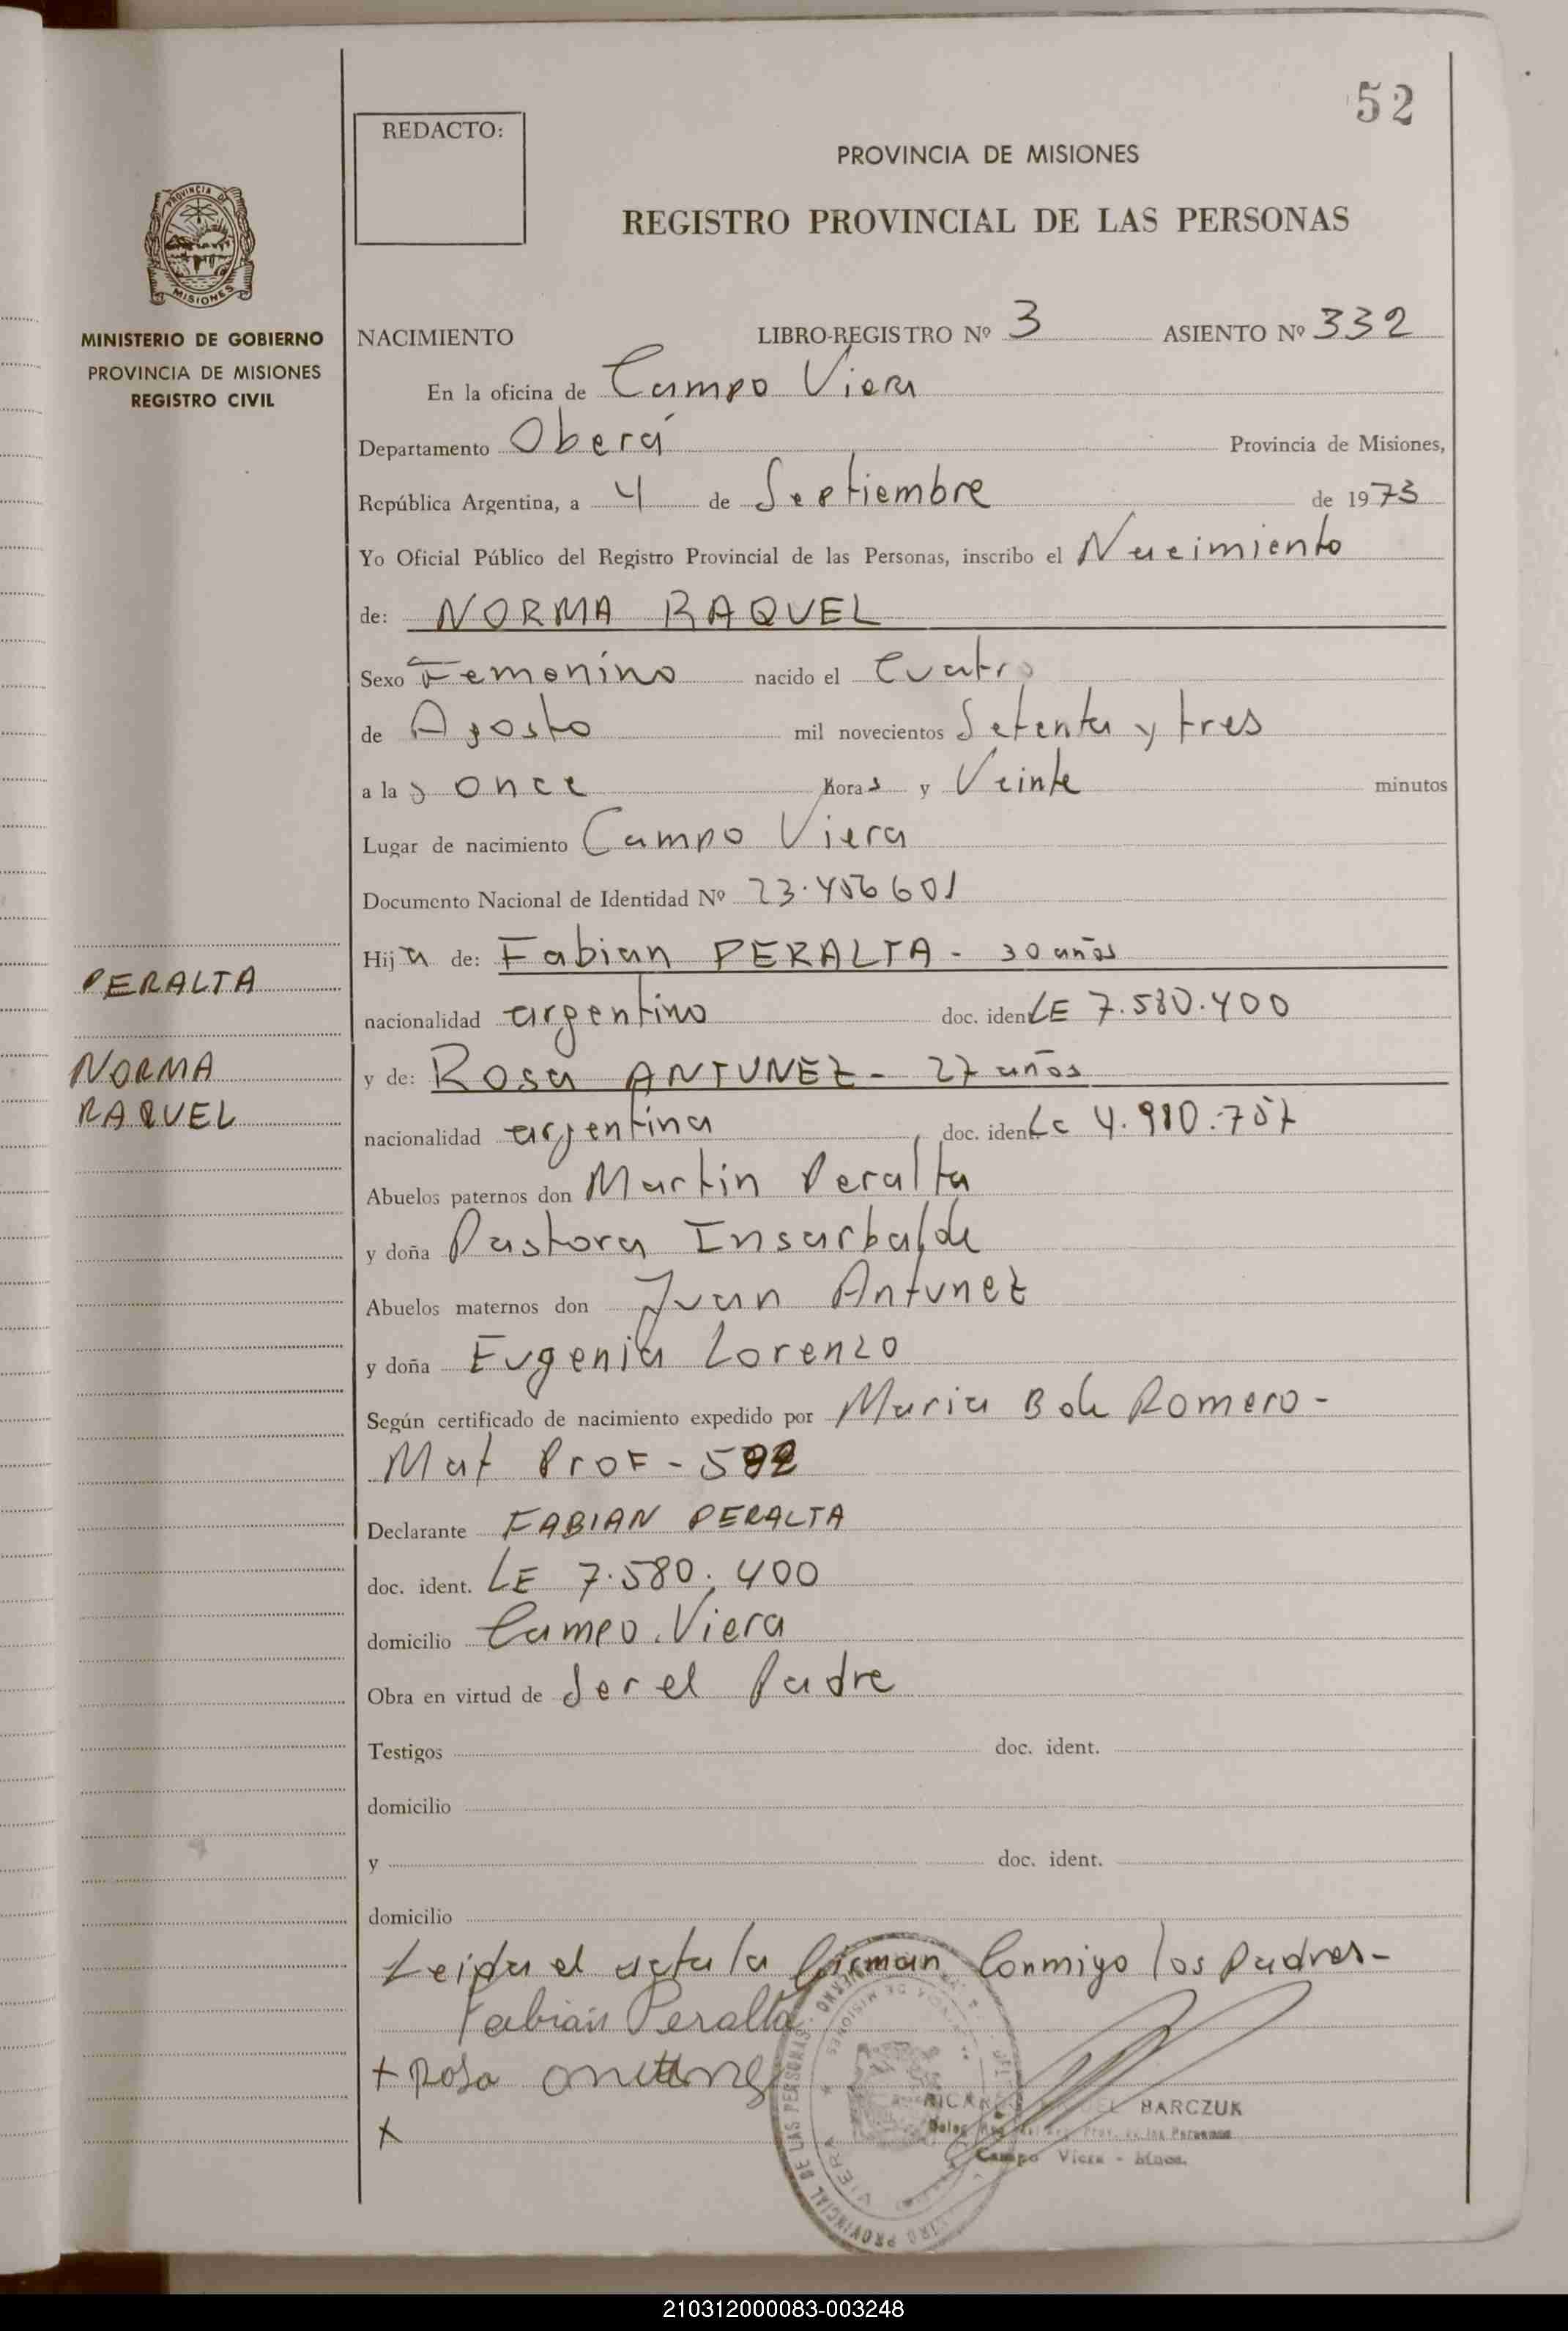 52
REDACTO:
PROVINCIA DE MISIONES
REGISTRO PROVINCIAL DE LAS PERSONAS
PROVINCIA DE
MISIONES
MINISTERIO DE GOBIERNO
PROVINCIA DE MISIONES
REGISTRO CIVIL
NACIMIENTO LIBRO-REGISTRO Nº 3 ASIENTO Nº 332
En la oficina de Campo Viera
Departamento Oberá Provincia de Misiones,
República Argentina, a 4 de Septiembre de 1973
Yo Oficial Público del Registro Provincial de las Personas, inscribo el Nacimiento
de: NORMA RAQUEL
Sexo Femenino nacido el Cuatro
de Agosto mil novecientos Setenta y tres
a las once horas y Veinte minutos
Lugar de nacimiento Campo Viera
Documento Nacional de Identidad Nº 23.456601
Hija de: Fabian PERALTA - 30 años
nacionalidad argentino doc. iden LE 7.580.400
y de: Rosa ANTUNEZ - 27 años
nacionalidad argentina doc. iden LC 4.980.757
Abuelos paternos don Martin Peralta
y doña Pastora Insarbalde
Abuelos maternos don Juan Antunez
y doña Eugenia Lorenzo
Según certificado de nacimiento expedido por Maria B de Romero -
Mat Prof - 592
Declarante FABIAN PERALTA
doc. ident. LE 7.580.400
domicilio Campo Viera
Obra en virtud de Ser el Padre
Testigos doc. ident.
domicilio
y doc. ident.
domicilio
Leida el acta la firman Conmigo los Padres -
Fabián Peralta
+ Rosa
+
PERALTA
NORMA
RAQUEL
BARCZUK
Campo Viera - Mnes.
210312000083-003248